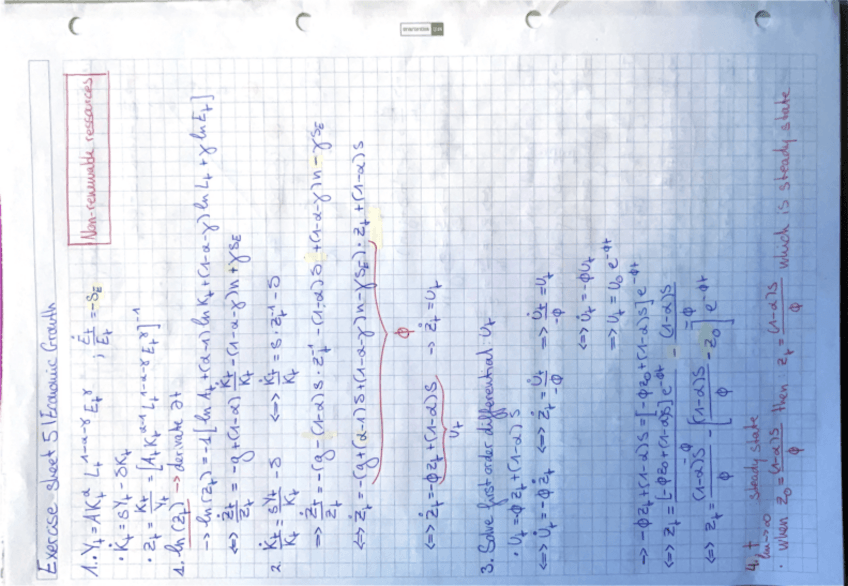 Exercise sheet 5 | Economic Growth
Non-renewable ressources
1. · Y_t = A K_t^α L_t^{1-α-γ} E_t^γ ; Ė_t/E_t = -s_E
· K̇_t = sY_t - δK_t
· z_t = K_t/Y_t = [A_t K_t^{α-1} L_t^{1-α-γ} E_t^γ]^{-1}
1. ln(z_t) → derivate ∂t
→ ln(z_t) = -1[ln A_t + (α-1) ln K_t + (1-α-γ) ln L_t + γ ln E_t]
⇔ ż_t/z_t = -g + (1-α) K̇_t/K_t - (1-α-γ)n + γs_E
2. K̇_t/K_t = sY_t/K_t - δ ⇔ K̇_t/K_t = s · z_t^{-1} - δ
⇒ ż_t/z_t = -(g - (1-α)s · z_t^{-1} - (1-α)δ + (1-α-γ)n - γs_E
⇔ ż_t = -(g + (α-1)δ + (1-α-γ)n - γs_E) · z_t + (1-α)s
ϕ
⇔ ż_t = -ϕz_t + (1-α)s → ż_t = U_t
U_t
3. Solve first order differential. U_t
· U_t = ϕ z_t + (1-α)s
⇔ U̇_t = -ϕ ż_t ⇔ ż_t = U̇_t/-ϕ ⇒ U̇_t/-ϕ = U_t
⇔ U̇_t = -ϕU_t
⇒ U_t = U_0 e^{-ϕt}
→ -ϕz_t + (1-α)s = [-ϕz_0 + (1-α)s] e^{-ϕt}
⇔ z_t = [-ϕz_0 + (1-α)s] e^{-ϕt}/-ϕ - (1-α)s/-ϕ
⇔ z_t = (1-α)s/ϕ - [(1-α)s/ϕ - z_0] e^{-ϕt}
4. t lim→∞ steady state
· when z_0 = (1-α)s/ϕ then z_t = (1-α)s/ϕ which is steady state